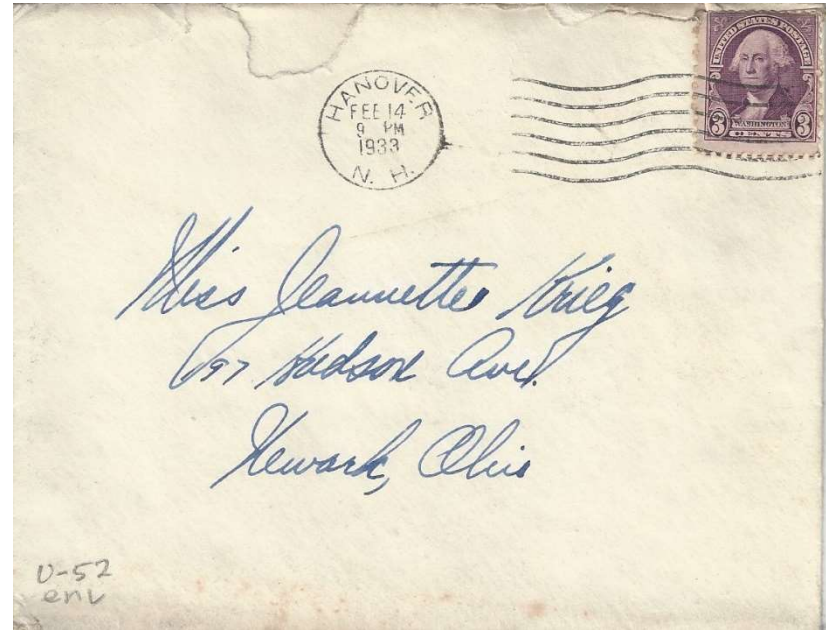 HANOVER
FEB 14
9 PM
1933
N. H.
UNITED STATES POSTAGE
3 WASHINGTON 3
CENTS
Miss Jeannette Krieg
697 Hudson Ave.
Newark, Ohio
U-52
env